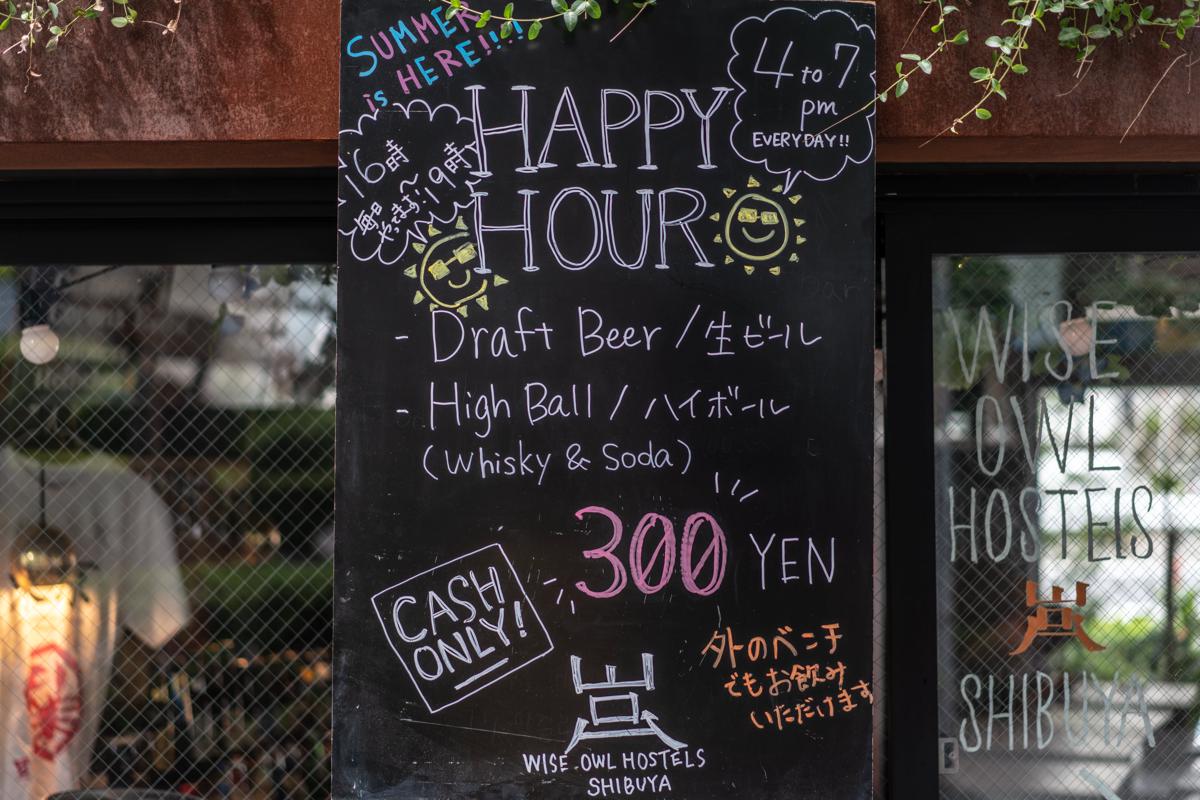 SUMMER
is HERE!!!!
4 to 7
pm
EVERYDAY!!
HAPPY
HOUR
16時
〜19時
毎日
やってます!
- Draft Beer / 生ビール
- High Ball / ハイボール
(Whisky & Soda)
300 YEN
CASH
ONLY!
外のベンチ
でもお飲み
いただけます
WISE.OWL HOSTELS
SHIBUYA
WISE
OWL
HOSTELS
SHIBUYA